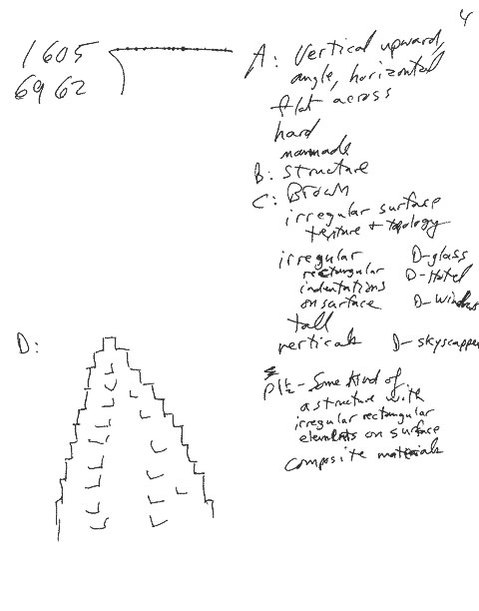 4
1605
6962
A: Vertical upward,
angle, horizontal
flat across
hard
manmade
B: Structure
C: Brown
irregular surface
texture + topology
irregular D-glass
rectangular D-Hotel
indentations
on surface D-Windows
tall
verticals D-skyscapper
D:
- Some kind of
a structure with
irregular rectangular
elements on surface
composite materials